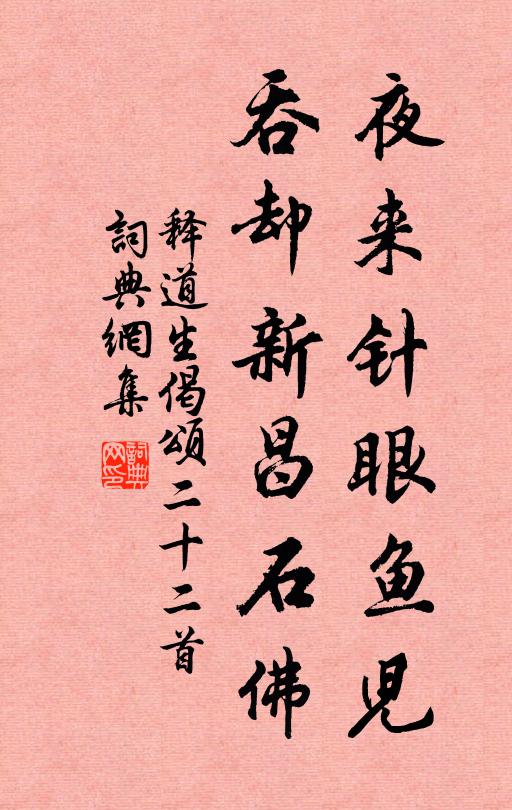 夜来针眼鱼児
吞却新昌石佛
释道生偈頌二十二首
詞典網集
詞典网印